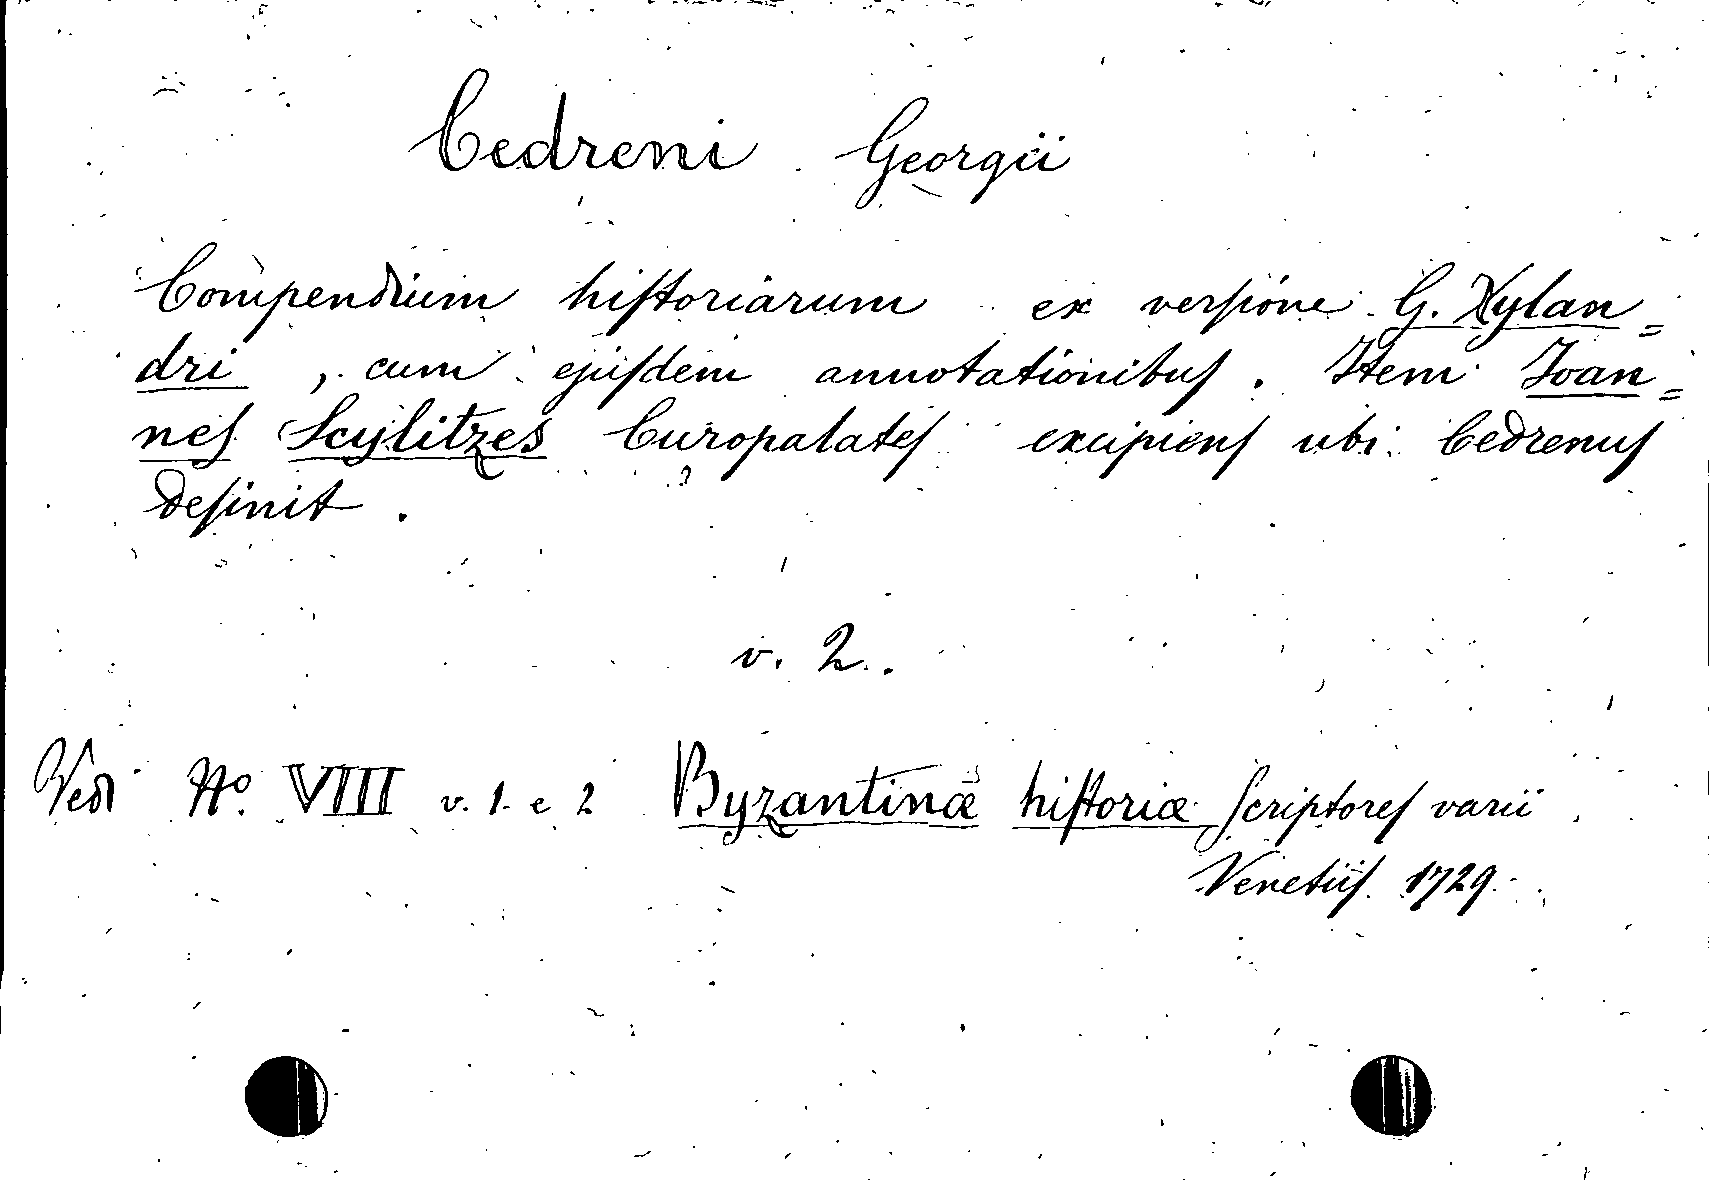 Cedreni Georgii
Compendium hiſtoriarum ex verſione G. Xylan=
dri, cum ejuſdem annotationibuſ. Item Joan=
neſ Scylitzes Curopalateſ excipienſ ubi Cedrenuſ
deſinit.
v. 2.
Vedi No. VIII v. 1. e 2 Byzantinæ hiſtoriæ Scriptoreſ varii
Venetiiſ. 1729.